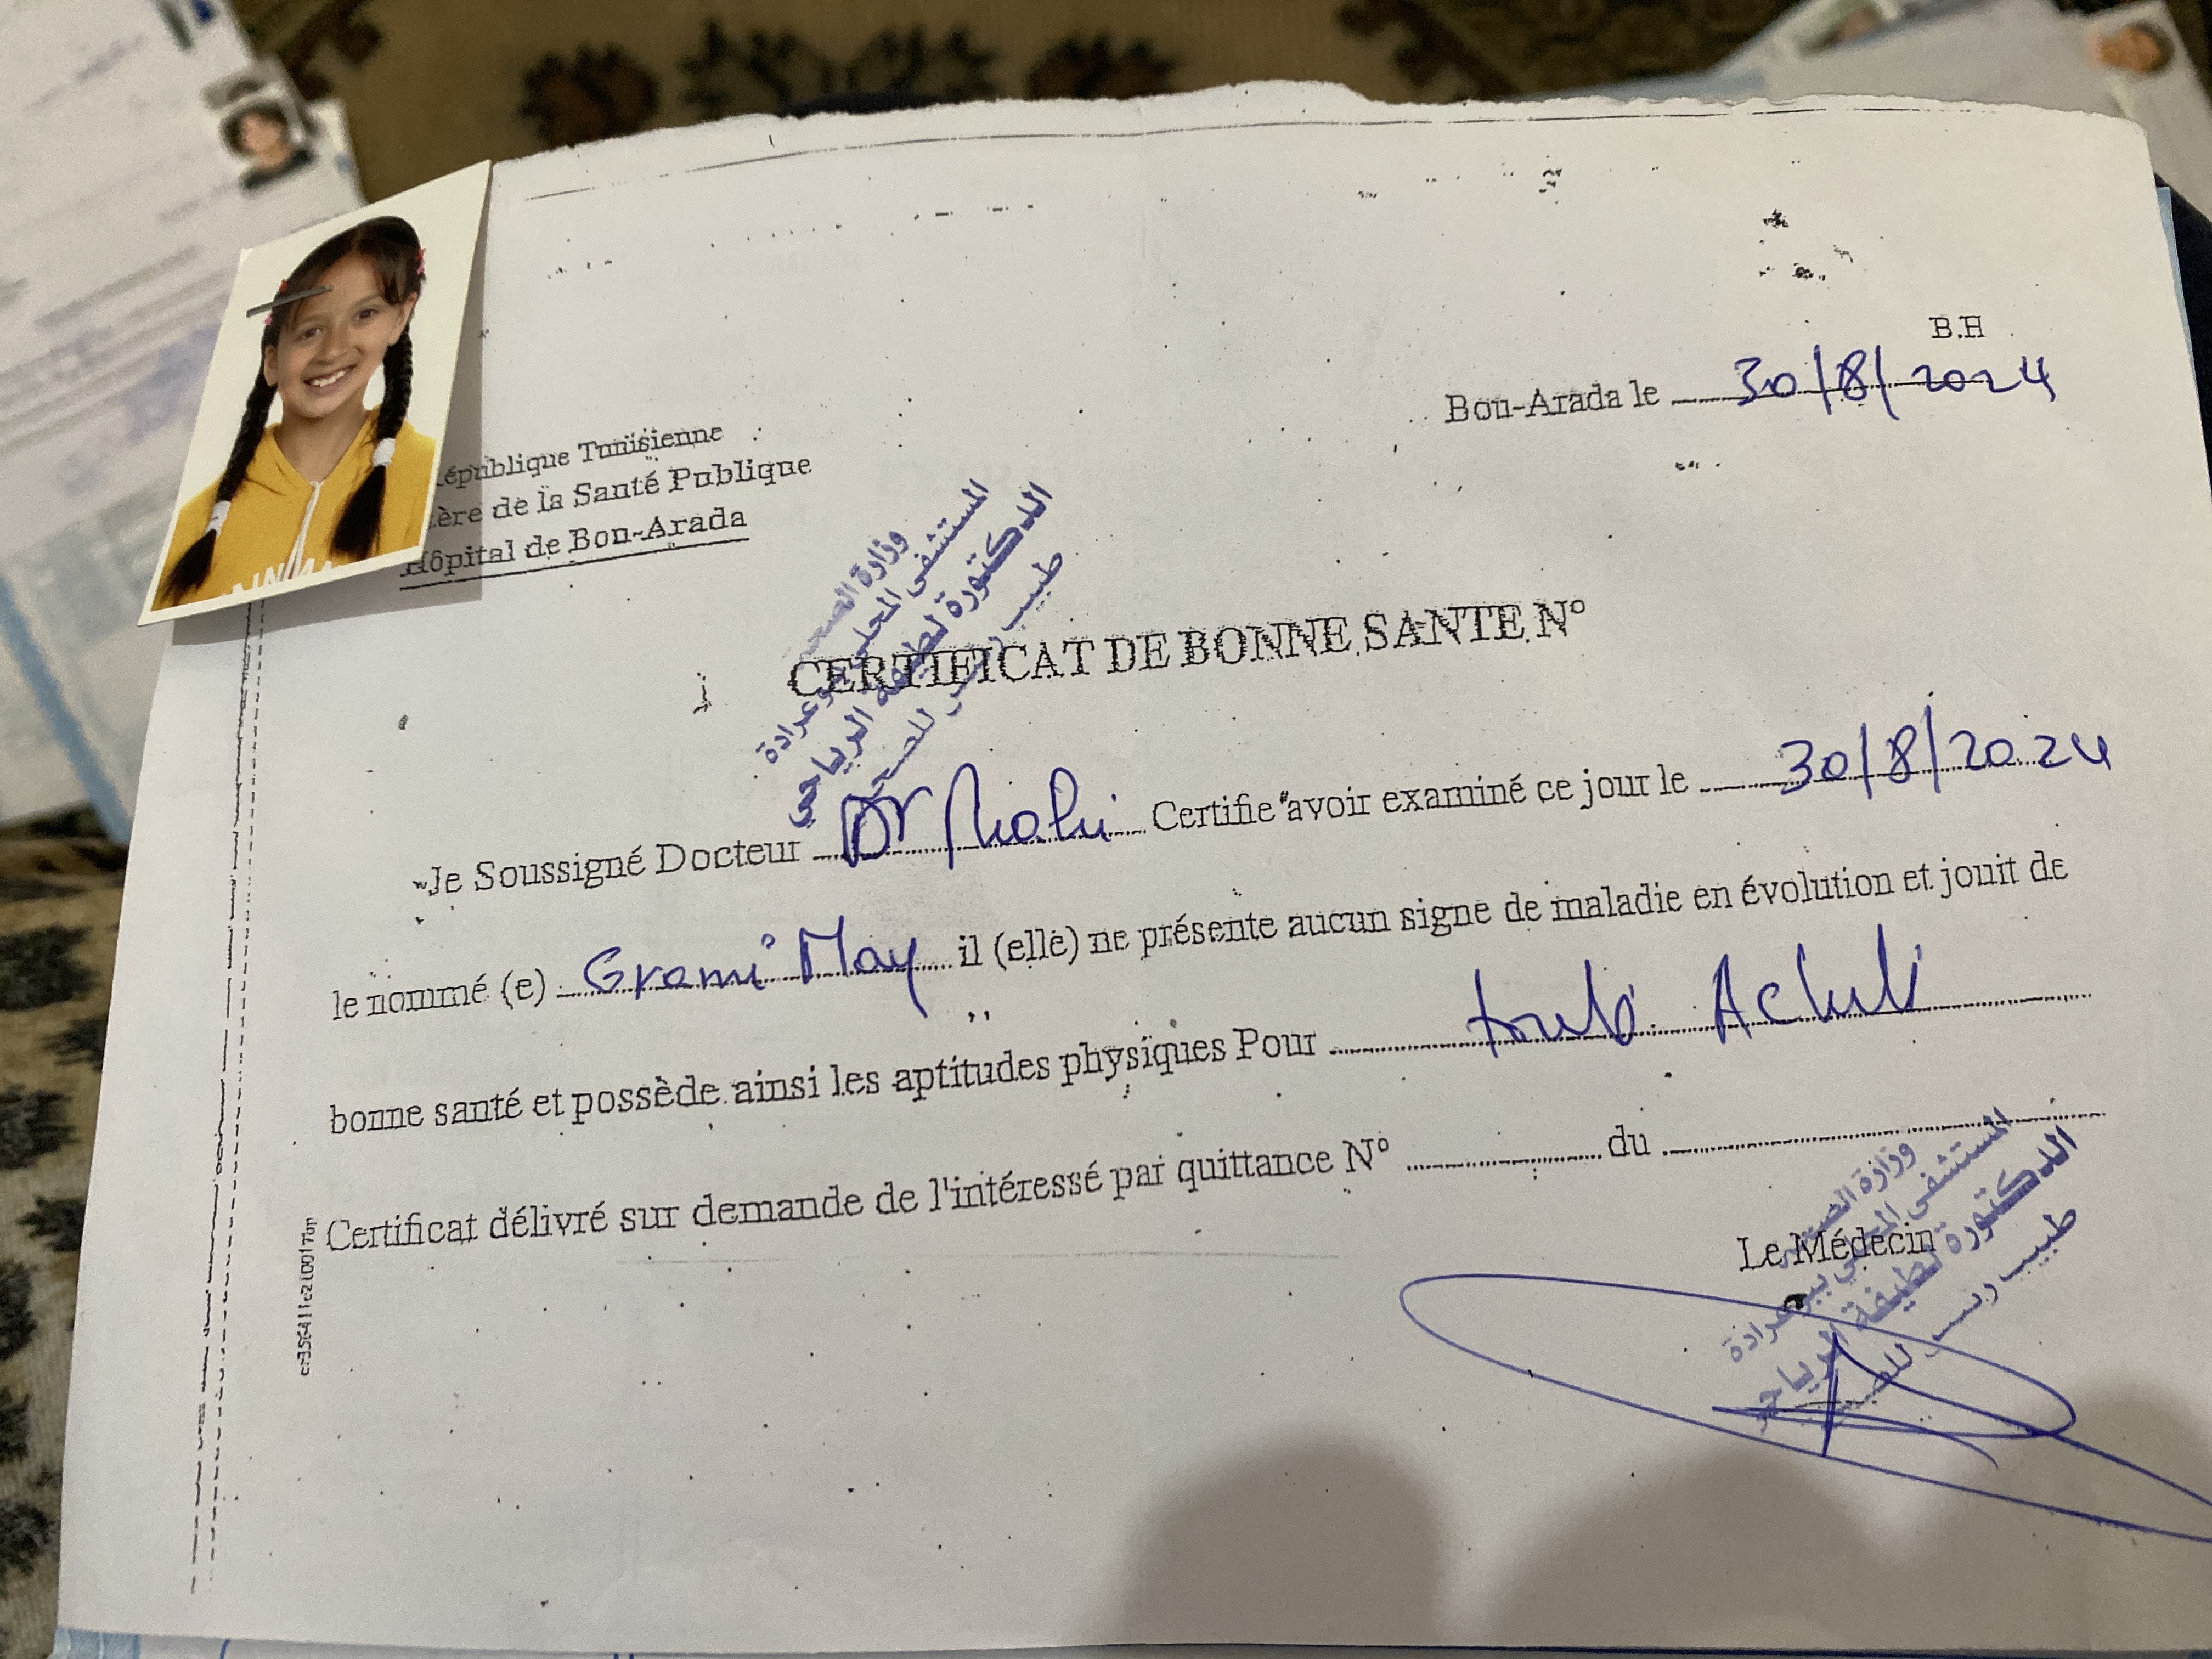 B.H
Bou-Arada le 30/8/2024
République Tunisienne
de la Santé Publique
Hôpital de Bou-Arada
وزارة الصحة
المستشفى المحلي ببوعرادة
الدكتورة لطيفة الرياحي
طبيب رئيس للصحة
CERTIFICAT DE BONNE SANTE N°
Je Soussigné Docteur Dr Riahi Certifie avoir examiné ce jour le 30/8/2024
le nommé (e) Grami May il (elle) ne présente aucun signe de maladie en évolution et jouit de
bonne santé et possède ainsi les aptitudes physiques Pour
Certificat délivré sur demande de l'intéressé par quittance N° du
Le Médecin
وزارة الصحة
المستشفى المحلي ببوعرادة
الدكتورة لطيفة الرياحي
طبيب رئيس للصحة